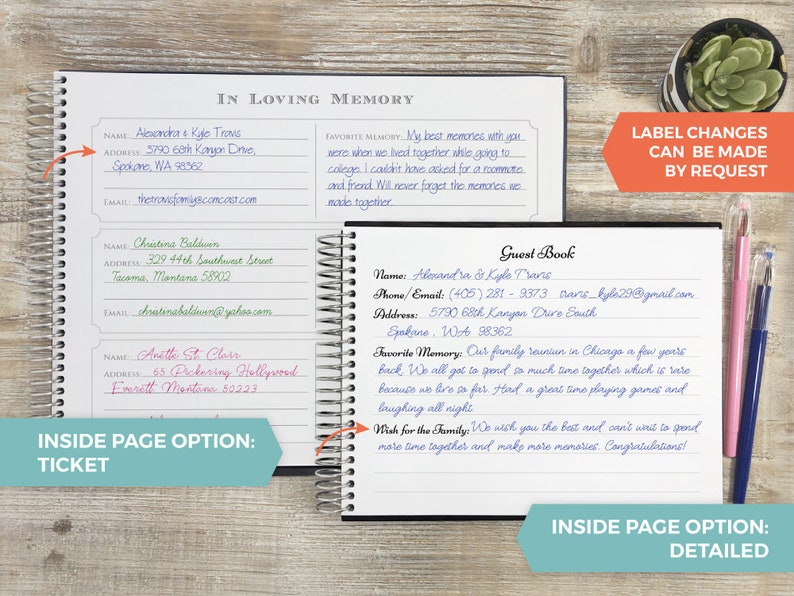 IN LOVING MEMORY
NAME: Alexandra & Kyle Travis
ADDRESS: 5790 68th Kanyon Drive,
Spokane, WA 98362
EMAIL: thetravisfamily@comcast.com
FAVORITE MEMORY: My best memories with you
were when we lived together while going to
college. I couldn't have asked for a roommate
and friend. Will never forget the memories we
made together.
NAME: Christina Baldwin
ADDRESS: 329 44th Southwest Street
Tacoma, Montana 58902
EMAIL: christinabaldwin@yahoo.com
NAME: Anette St. Clair
ADDRESS: 65 Pickering Hollywood
Everett Montana 50223
Guest Book
Name: Alexandra & Kyle Travis
Phone/Email: (405) 281 - 9373 travis_kyle29@gmail.com
Address: 5790 68th Kanyon Drive South
Spokane, WA 98362
Favorite Memory: Our family reuniun in Chicago a few years
back. We all got to spend so much time together which is rare
because we live so far. Had a great time playing games and
laughing all night.
Wish for the Family: We wish you the best and can't wait to spend
more time together and make more memories. Congratulations!
LABEL CHANGES
CAN BE MADE
BY REQUEST
INSIDE PAGE OPTION:
TICKET
INSIDE PAGE OPTION:
DETAILED